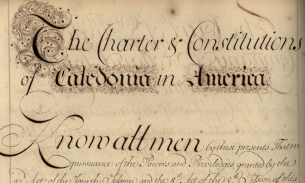 The Charter & Constitutions
of Caledonia in America
Know all men by these presents That in
pursuance of the Powers and Priviledges granted by the
Act of the fourth Session and the 8th Act of the 5th Session of this